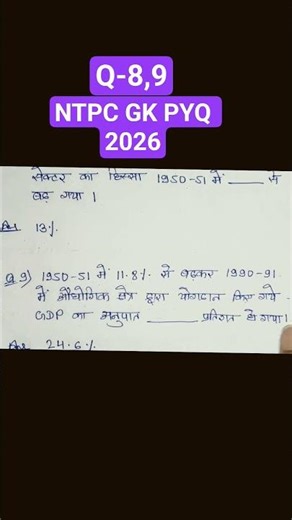 Q-8,9
NTPC GK PYQ
2026
सेक्टर का हिस्सा 1950-51 में ____ से
बढ़ गया ।
Ans 13%
Q 9) 1950-51 में 11.8% से बढ़कर 1990-91
में औद्योगिक क्षेत्र द्वारा योगदान किए गये
GDP का अनुपात ____ प्रतिशत हो गया।
Ans 24.6%